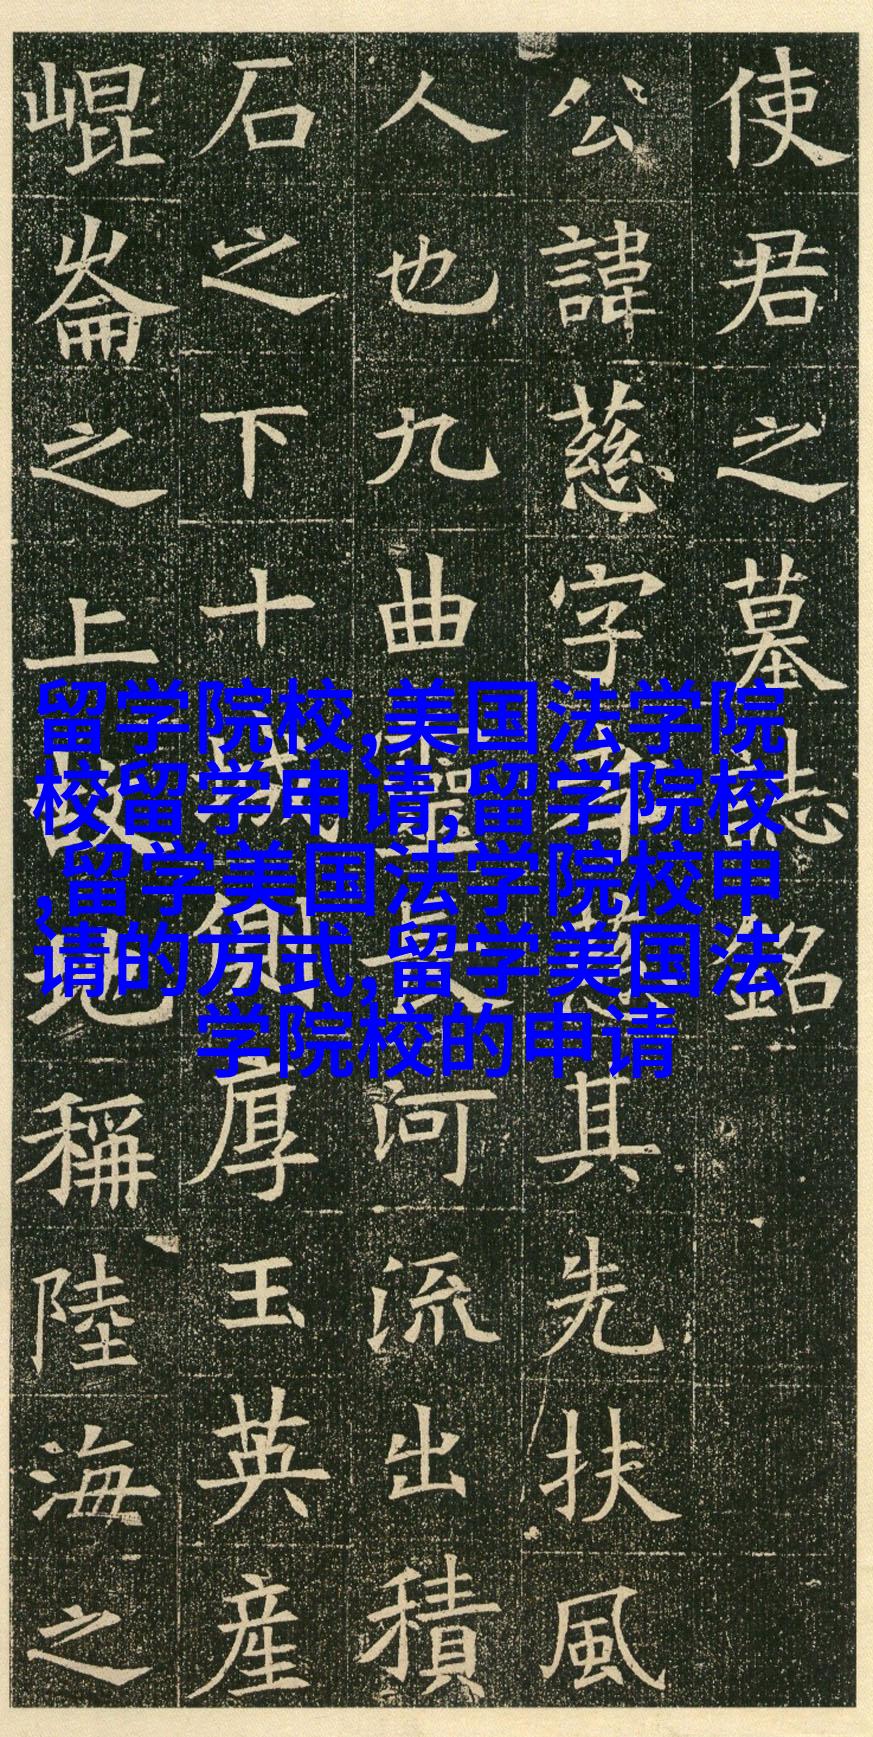 使君之墓誌銘
公諱慈字其先扶風
人也九曲靈長河流出積
石之下十城側厚玉英産
崐崙之上故地稱陸海之
留学院校,美国法学院
校留学申请,留学院校
,留学美国法学院校申
请的方式,留学美国法
学院校的申请